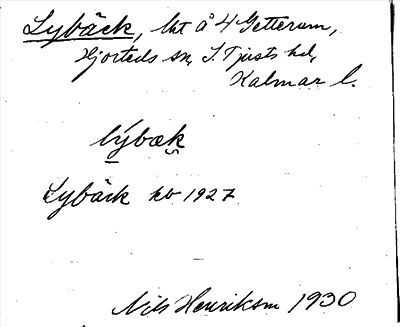 Lybäck, lht å 4 Getterum,
Hjorteds sn, S. Tjusts hd,
Kalmar l.
lýbæk
Lybäck kb 1927
Nils Henriksm 1930